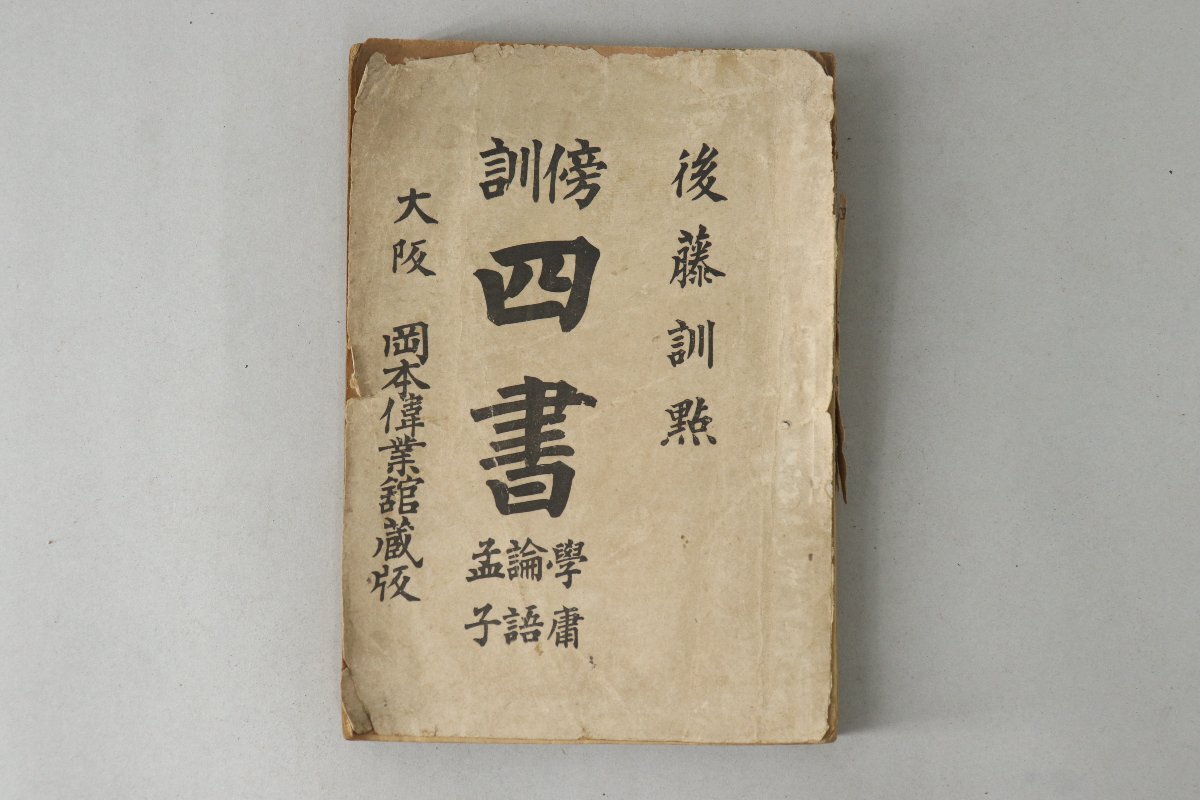 後藤訓點
傍訓
四書
學庸
論語
孟子
大阪 岡本偉業舘蔵版